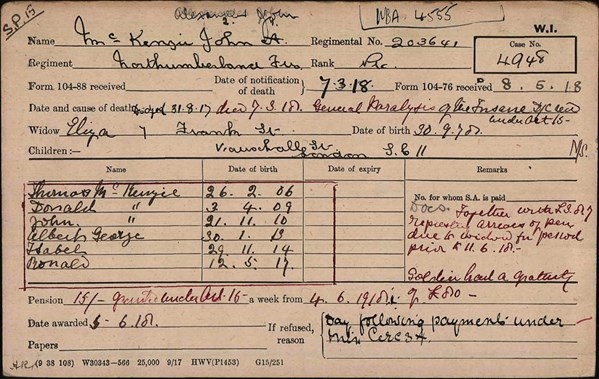 S.P. 15
Alexander John
W.B.A. 4555
W.I.
Name McKenzie John A. Regimental No. 203641
Case No. 4948
Regiment Northumberland Fus Rank Pte
Form 104-88 received Date of notification of death 7.3.18. Form 104-76 received 8.5.18
Date and cause of death 31.8.17 died 7.3.18. General Paralysis of the Insane
under Art 15-
Widow Eliza 7 Frank St. Date of birth 30.9.78.
Children:— Vauxhall St London S.E 11 N/S.
Name Date of birth Date of expiry Remarks
Thomas McKenzie 26. 2. 06
Donald " 3. 4. 09
John " 21. 11. 10
Albert George 30. 1. 13
Isabel 29. 11. 14
Ronald 12. 5. 17.
No. for whom S.A. is paid
Docs. Together with
arrears of pen
due to widow for period
prior to 11.6.18.
Soldier had a gratuity
of £80-
Pension 15/- under Art. 16 a week from 4.6.1918
Date awarded 5-6.18.
If refused, reason
Day following payments under
Papers
(9 38 108) W30343—566 25,000 9/17 HWV(P1453) G15/251